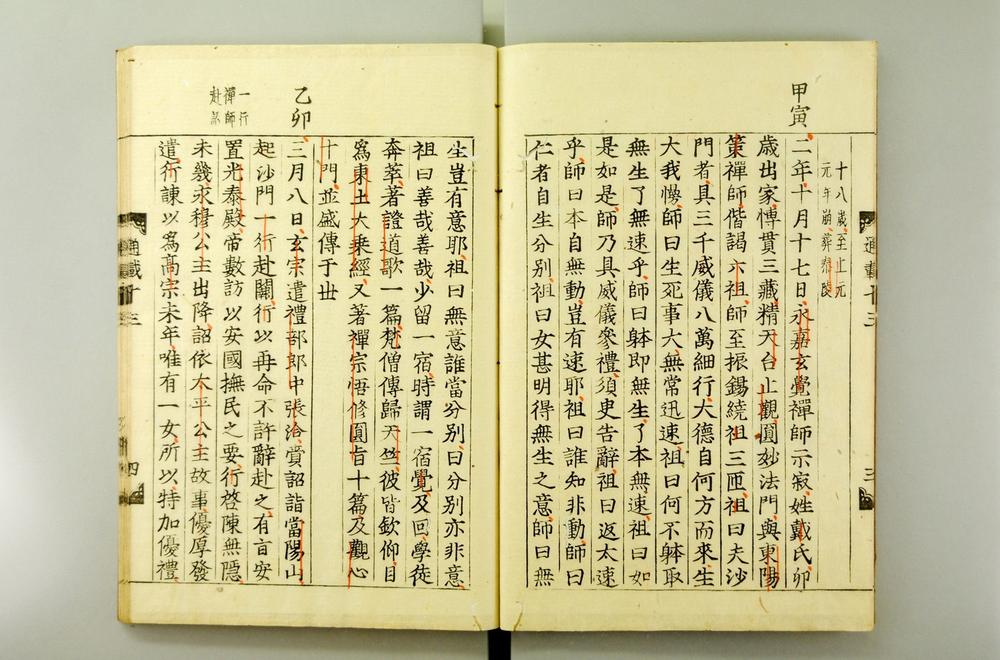 十八歲至上元
元年崩葬泰陵
甲寅
二年十月十七日永嘉玄覺禪師示寂姓戴氏丱
歲出家愽貫三藏精天台止觀圓妙法門與東陽
策禪師偕謁六祖師至振錫繞祖三匝祖曰夫沙
門者具三千威儀八萬細行大德自何方而來生
大我慢師曰生死事大無常迅速祖曰何不躰取
無生了無速乎師曰躰即無生了本無速祖曰如
是如是師乃具威儀參禮須臾告辭祖曰返太速
乎師曰本自無動豈有速耶祖曰誰知非動師曰
仁者自生分別祖曰女甚明得無生之意師曰無
通載十三
三
生豈有意耶祖曰無意誰當分別曰分別亦非意
祖曰善哉善哉少留一宿時謂一宿覺及回學徒
奔萃著證道歌一篇梵僧傳歸天竺彼皆欽仰目
爲東土大乘經又著禪宗悟修圓旨十篇及觀心
十門並盛傳于世
乙卯
三月八日玄宗遣禮部郎中張洽賷詔詣當陽山
起沙門一行赴闕行以再命不許辭赴之有旨安
一行
禪師
赴京
置光泰殿帝數訪以安國撫民之要行啓陳無隱
未幾永穆公主出降詔依太平公主故事優厚發
遣行諫以爲高宗末年唯有一女所以特加優禮
通載十三
四